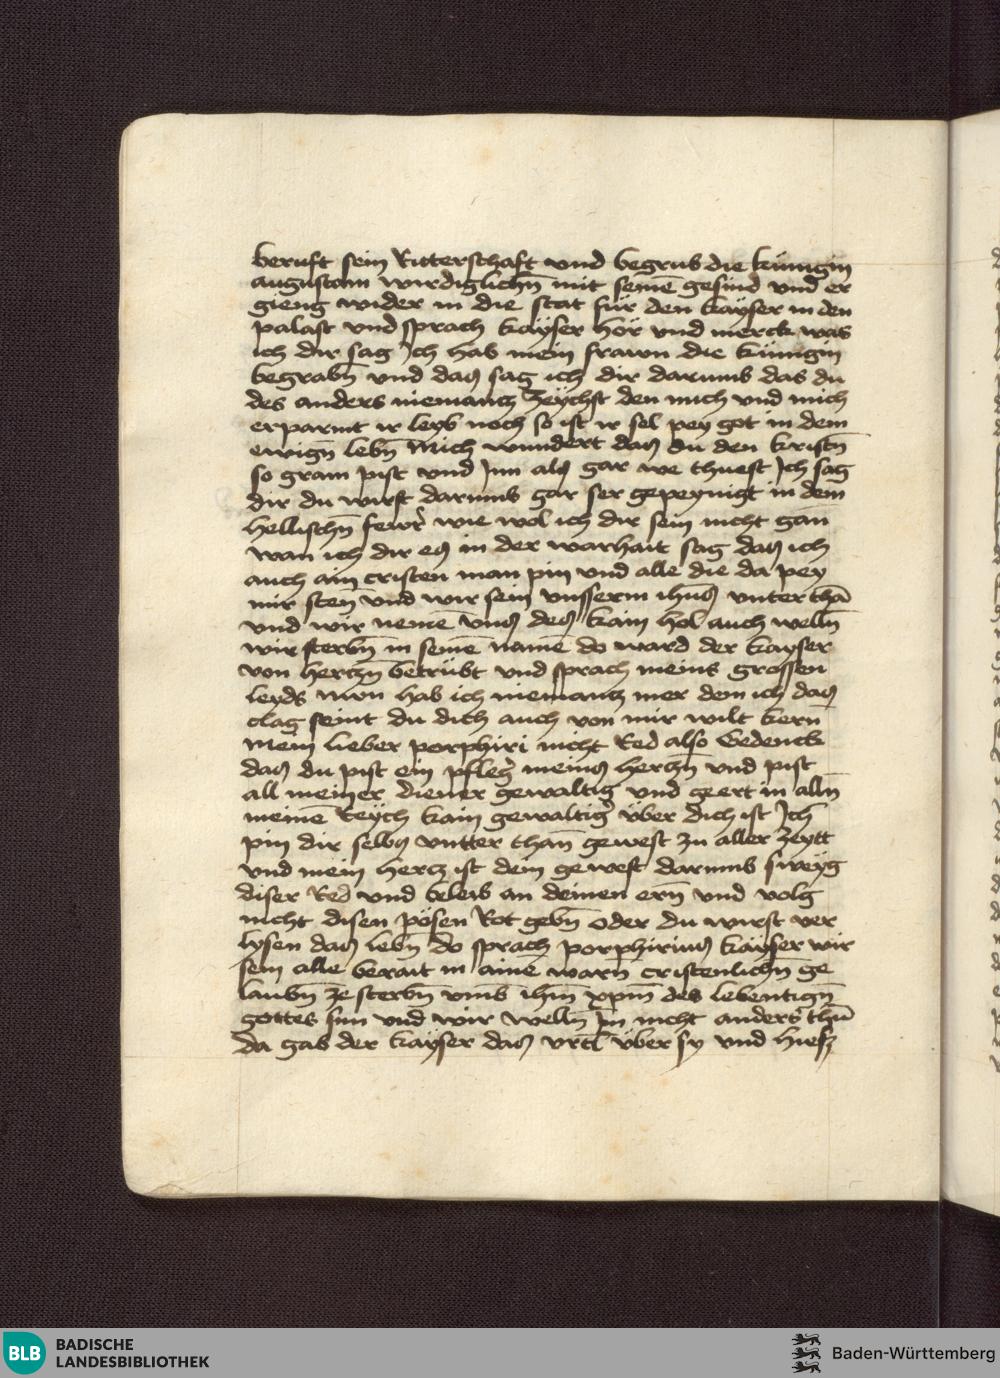 beruft sein Ritterschaft vnd begrub die künigin
augustam wirdiglichn̄ mit seinē gesind vnd er
gieng wider in die stat für den kaÿser in den
palast vnd sprach kaÿser hör vnd merck was
ich dir sag Ich hab mein frawn die künigin
begrabn̄ vnd das sag ich dir darumb das du
des anders niemantz zeÿchst den mich vnd mich
erparmt ir leyb noch so ist ir sel pey got in dem
ewign̄ lebn̄ Mich wundert das du den kristn̄
so gram pist vnd Inn als gar we thuest Ich sag
dir du wirst darumb gar ser gepeynigt in dem
hellischn̄ fewr̄ wie wol ich dir sein nicht gan
wan ich dir es in der warhait sag das ich
auch ain cristen man pin vnd alle die da pey
mir sten̄ vnd wir sein vnsserm ihūs vnter thā
vnd wir nemē vns des kain hol auch welln̄
wir sterbn̄ in seinē namē do ward der kayser
von hertzn̄ betrübt vnd sprach meins grossen
leyds nvn hab ich niemantz mer dem ich das
clag seint du dich auch von mir wilt kern
Mein lieber porphiri nicht Red also Gedenck
das du pist ein pfleḡ meins hertzn̄ vnd pist
all meiner diener gewaltig vnd geert in alln̄
meinē Reÿch kain gewaltiḡ über dich ist Ich
pin dir selbs vntter than̄ gewest zu aller zeytt
vnd mein hertz ist dein gewest darumb sweÿg
diser Red vnd beleib an deinen ern̄ vnd volg
nicht disen pösen Rot gebn̄ oder du wirst ver
lysen das lebn̄ do sprach porphirius kaÿser wir
sein alle berait in ainē warn̄ cristenlichn̄ ge
laubn̄ ze sterbn̄ vmb ihm̄ xp̄m des lebentign̄
gottes sun vnd wir welln̄ Im nicht anders thū
da gab der kaÿser das vrtl̄ über sy vnd hiesz
BLB BADISCHE
LANDESBIBLIOTHEK
Baden-Württemberg